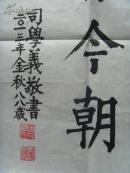 今朝
二〇一三年金秋八八歲
司學義敬書